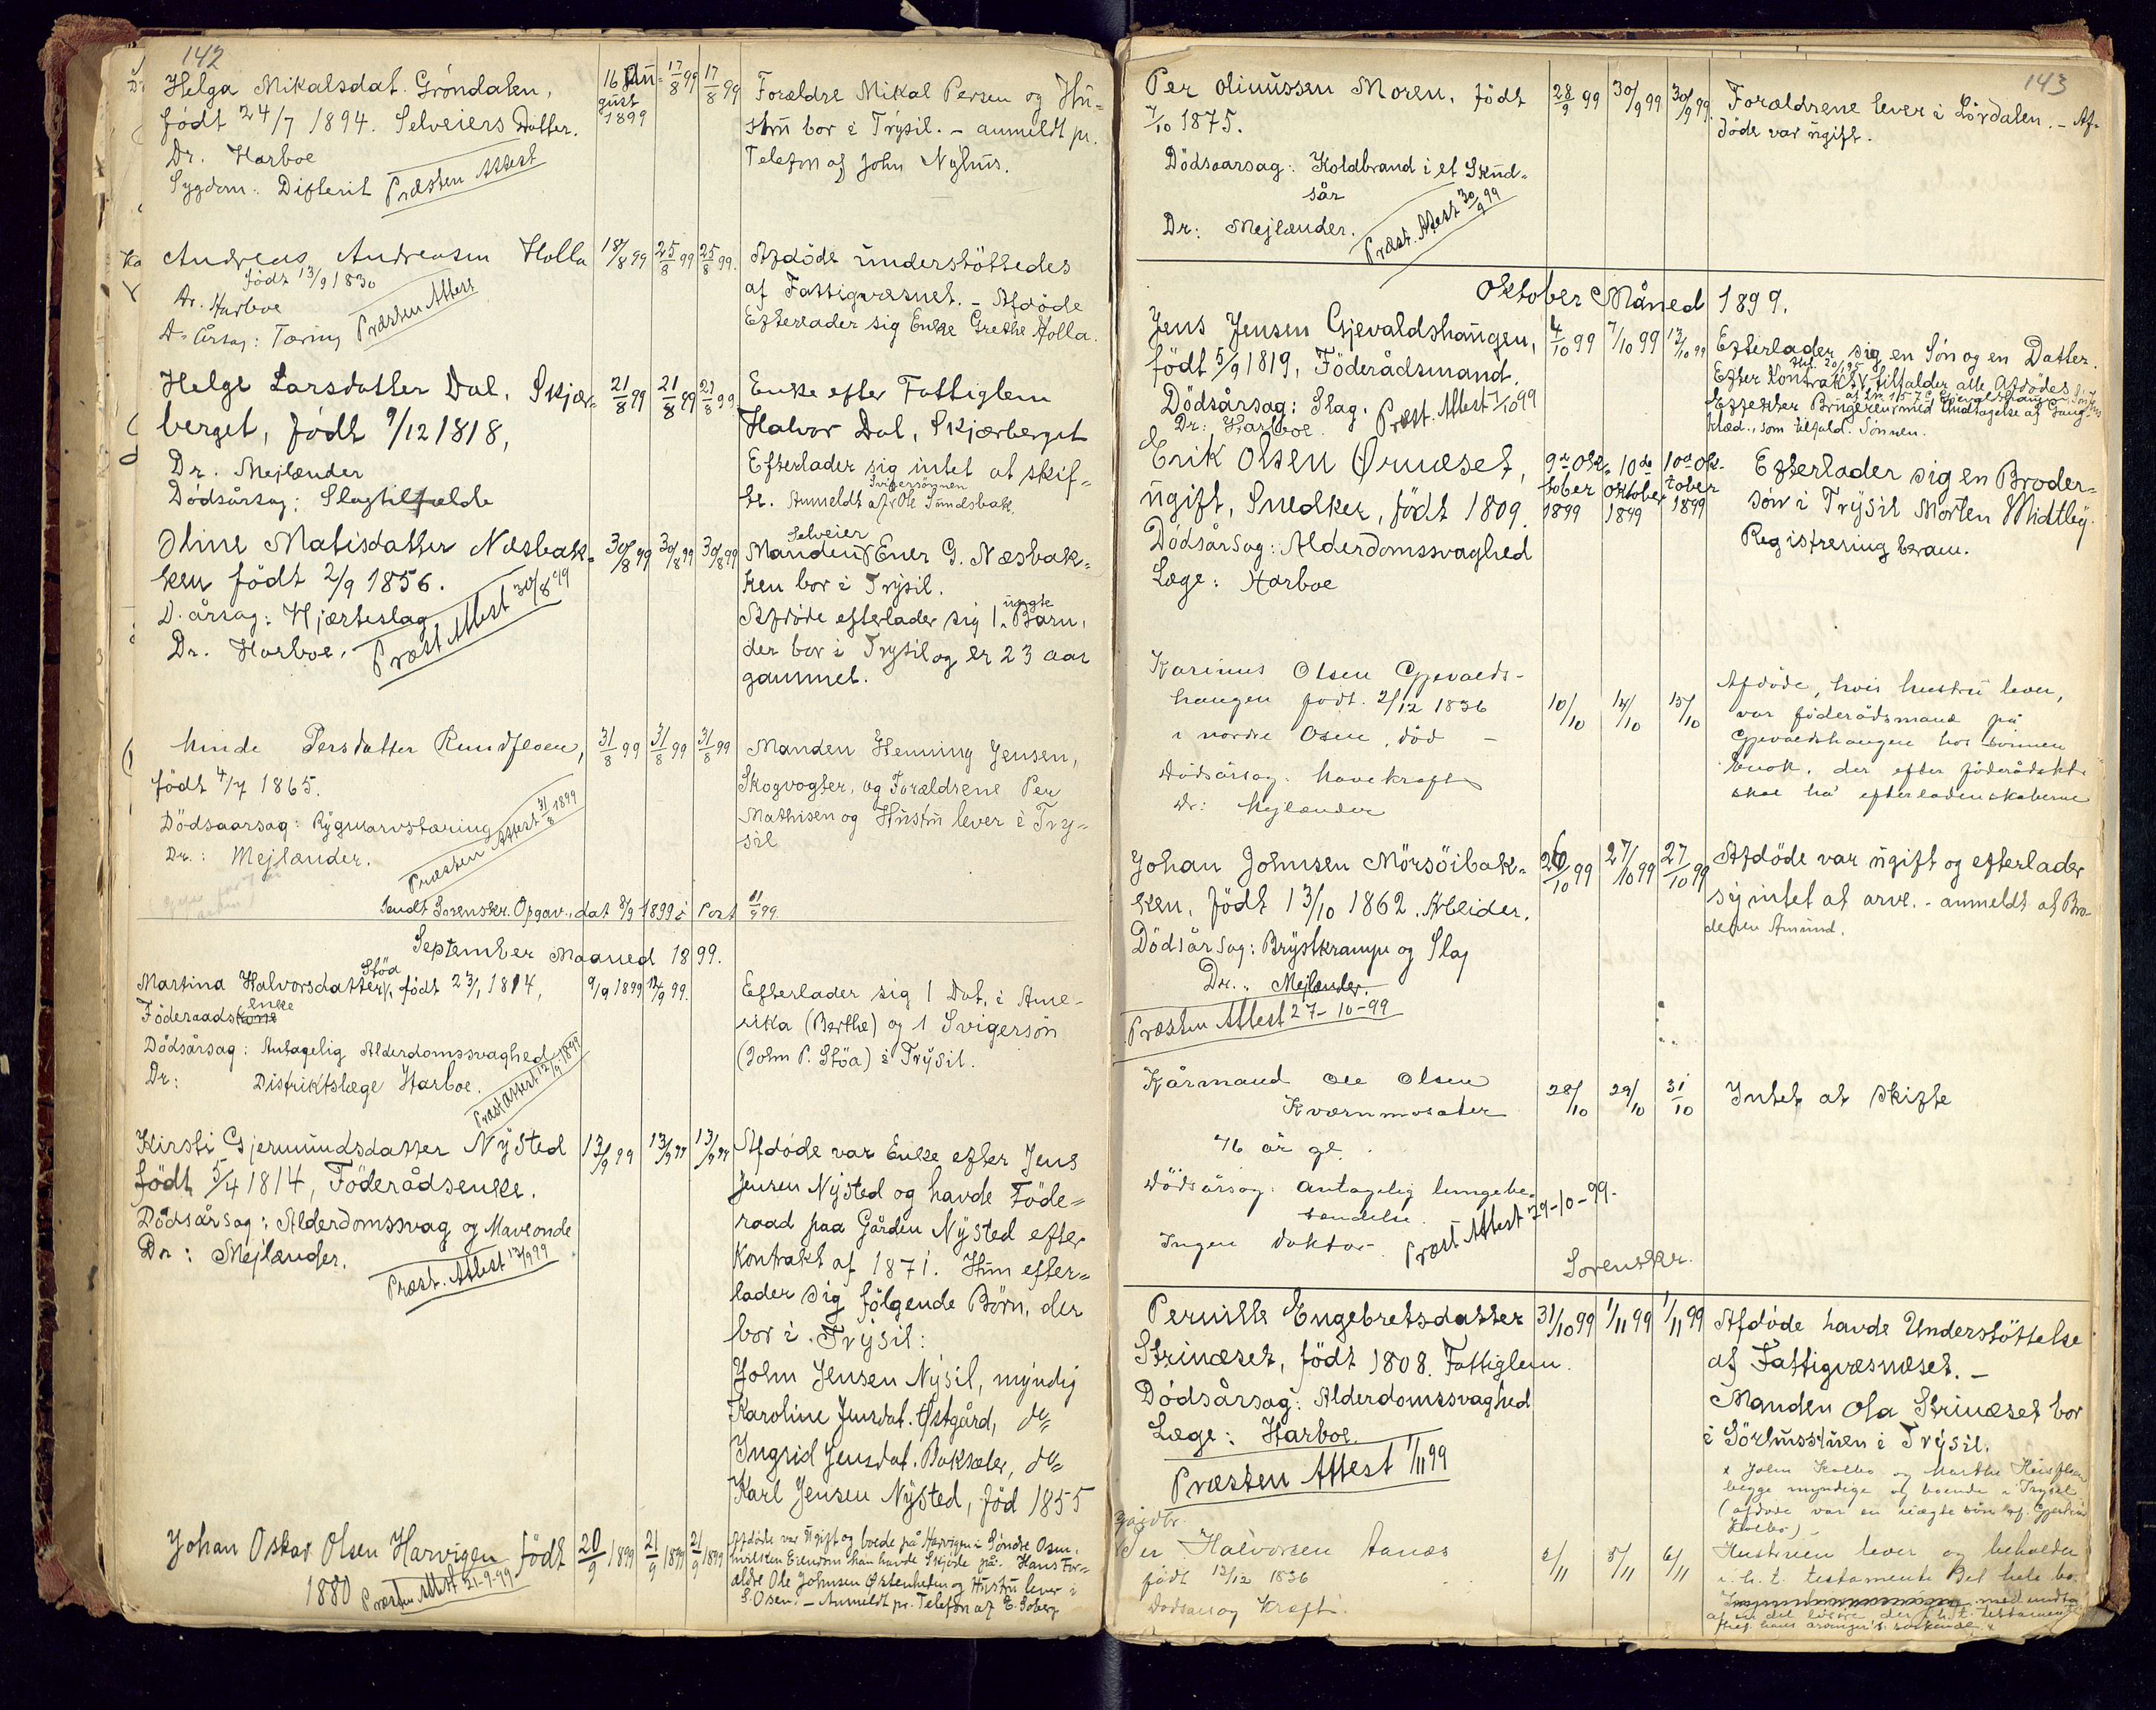 142
Helga Mikalsdat. Gröndalen,
født 24/7 1894. Selveiers Datter.
Dr. Harboe
Sygdom: Difterit Præsten Attest
16 Au-
gust
1899
17/8 99
17/8 99
Forældre Mikal Persen og Hu-
stru bor i Trysil. – anmeldt pr.
Telefon af John Nyhus.
Andreas Andreasen Holla
født 13/9 1830
Dr. Harboe
D. Årsag: Tæring Præsten Attest
18/8 99
25/8 99
25/8 99.
Afdöde understöttedes
af Fattigvæsnet. – Afdöde
Efterlader sig Enke Grethe Holla.
Helge Larsdatter Dal, Skjær-
berget, født 9/12 1818,
Dr. Mejlænder
Dödsårsag: Slagtilfælde
21/8 99
21/8 99
23/8 99
Enke efter Fattiglem
Halvor Dal, Skjærberget
Efterlader sig intet at skif-
Svigersönnen
te. Anmeldt af Ole Sundsbak.
Oline Matisdatter Næsbak-
ken født 2/9 1856.
D. årsag: Hjærteslag
Dr. Harboe. Præst Attest 30/8 99
30/8 99
30/8 99
30/8 99
Selveier
Manden Ener G. Næsbak-
ken bor i Trysil.
uægte
Afdöde efterlader sig 1 Barn,
der bor i Trysil og er 23 aar
gammel.
Minde Persdatter Rundfloen,
født 4/7 1865.
Dödsaarsag: Rygmarvstæring
Dr.: Mejlænder.
Præsten Attest 31/8 1899
31/8 99
31/8 99
31/8 99
Manden Henning Jensen,
Skogvogter, og Forældrene Per
Mathisen og Hustru lever i Try-
sil
Sendt Sorenskr. Opgav., dat 8/9 1899 i Post 11/9 99
September Maaned 1899.
Stöa
Martina Halvorsdatter, født 23/1 1814,
enke
Föderaadskone
Dödsårsag: Antagelig Alderdomssvaghed
Dr: Distriktslæge Harboe.
Præst Attest 12/9 1899
9/9 1899
12/9 99.
Efterlader sig 1 Dat. i Ame-
rika (Berthe) og 1 Svigersön
(John P. Stöa) i Trysil.
Kirsti Gjermundsdatter Nysted
født 5/4 1814, Föderådsenke.
Dödsårsag: Alderdomssvag og Maveonde
Dr: Mejlænder.
Præst. Attest 13/9 99
13/9 99
13/9 99
13/9 99
Afdöde var Enke efter Jens
Jensen Nysted og havde Föde-
raad paa Gården Nysted efter
Kontrakt af 1871. Hun efter-
lader sig fölgende Börn, der
bor i Trysil:
John Jensen Nysil, myndig
Karoline Jensdat. Østgård, do
Ingrid Jensdat. Baksæter, do
Karl Jensen Nysted, föd 1855
Johan Oskar Olsen Harvigen født
1880 Præsten Attest 21-9-99
20/9 1899
21/9 1899
21/9 1899
Afdöde var ugift og boede på Harvigen i Söndre Osen,
hvilken Eiendom han havde Skjöde på. Hans For-
ældre Ole Johnsen Østenheden og Hustru lever i
S. Osen. – Anmeldt pr. Telefon af E. Soberg
143
Per Olinussen Moren, født
7/10 1875.
Dödsaarsag: Koldbrand i et Skud-
sår
Dr: Mejlænder. Præst. Attest 30/9 99
28/9 99
30/9 99
30/9 99.
Forældrene lever i Lördalen. – Af-
döde var ugift.
Oktober Måned 1899.
Jens Jensen Gjevaldshaugen,
født 5/9 1819, Föderådsmand.
Dödsårsag: Slag. Præst. Attest 7/10 99
Dr: Harboe.
4/10 99
7/10 99
13/10 99
Efterlader sig en Sön og en Datter.
Efter Kontrakt tilfalder alle Afdödes
Effekter Brugeren med Undtagelse af Gang-
klæd., som tilfald. Sönnen.
Erik Olsen Ørnæset,
ugift, Snedker, født 1809.
Dödsårsag: Alderdomssvaghed
Læge: Harboe
9de Ok-
tober
1899
10de
Oktober
1899
10de Ok-
tober
1899
Efterlader sig en Broder-
sön i Trysil Morten Midtby.
Registrering beram.
Karinus Olsen Gjevalds-
haugen født. 2/12 1836
i nordre Osen, död –
Dödsårsag: Mavekræft
Dr: Mejlænder
10/10
14/10
15/10
Afdöde, hvis hustru lever,
var föderådsmand på
Gjevaldshaugen hos sönnen
Enok, der efter föderådskt.
skal ha efterladenskaberne
Johan Johnsen Mörsöibak-
ken, født 13/10 1862. Arbeider.
Dödsårsag: Brystkrampe og Slag
Dr.: Mejlænder.
Præsten Attest 27-10-99
26/10 99
27/10 99
27/10 99
Afdöde var ugift og efterlader
sig intet at arve. – anmeldt af Bro-
deren Amund.
Kårmand Ole Olsen
Kværnmosæter
76 år gl.
Dödsårsag: antagelig lungebe-
tændelse.
Ingen doktor. Præst Attest 29-10-99.
28/10
29/10
31/10
Intet at skifte
Sorenskr.
Pernille Engebretsdatter
Strinæset, født 1808. Fattiglem.
Dödsårsag: Alderdomssvaghed
Læge: Harboe.
Præsten Attest 1/11 99
31/10 99
1/11 99
1/11 99
Afdöde havde Understöttelse
af Fattigvæsnæset. –
Manden Ola Strinæset bor
i Sörhusstuen i Trysil.
x John Kolbo og Marthe
begge myndige og boende i Trysil
(afdöde var en uægte sön af
Kolbo)
Gårdbr.
Per Halvorsen Aanæs
født 12/12 1836
Dödsårsag Kræft.
2/11
5/11
6/11
Hustruen lever og beholder
i h. t. testamente Det hele bo
med undta
af en del lösöre, der i h. t. testamente